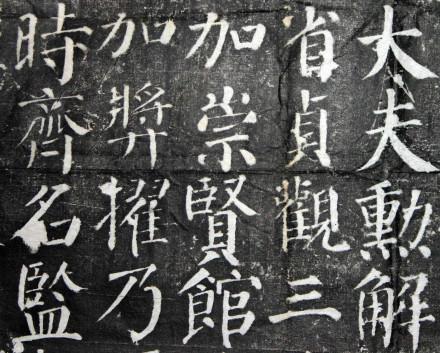 大夫勳解
省貞觀三
加崇賢館
加獎擢乃
時齊名監